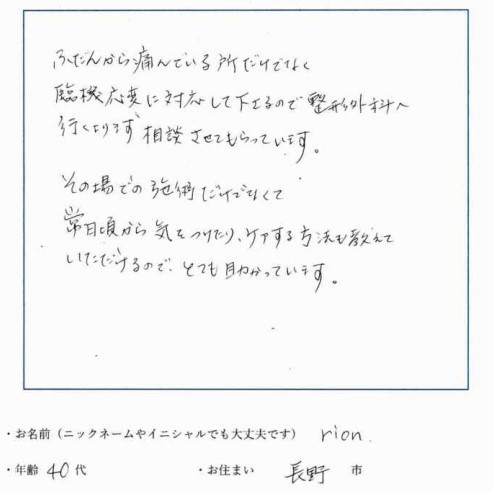 ふだんから痛んでいる所だけでなく
臨機応変に対応して下さるので整形外科へ
行くよりまず相談させてもらっています。
その場での施術だけでなくて
常日頃から気をつけたり、ケアする方法も教えて
いただけるので、とても助かっています。
・お名前（ニックネームやイニシャルでも大丈夫です） rion.
・年齢 40代 ・お住まい 長野 市